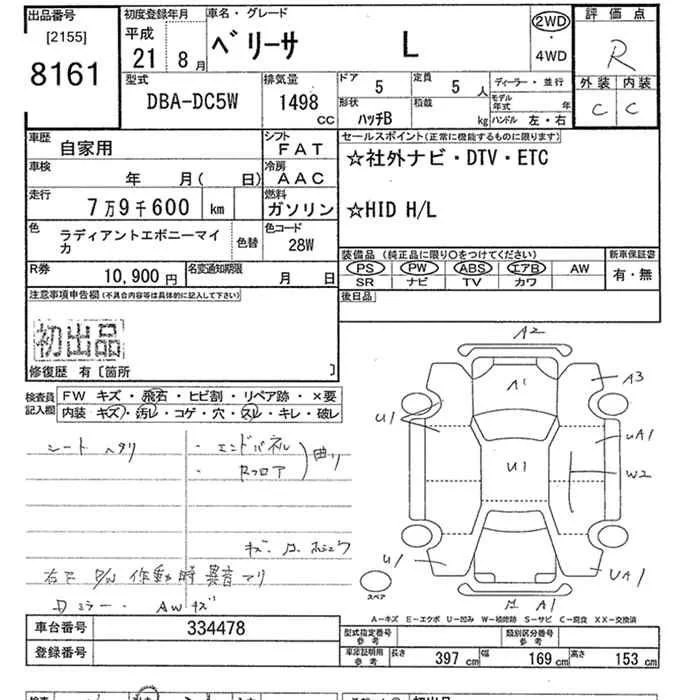 出品番号
[2155]
8161
初度登録年月
平成
21 8月
車名・グレード
ベリーサ L
2WD
・
4WD
評価点
R
外装 内装
C C
型式
DBA-DC5W
排気量
1498 cc
ドア
5
定員
5 人
形状
ハッチB
積載
kg
ディーラー・並行
モデル年式 年
ハンドル 左・右
車歴
自家用
シフト
FAT
車検
年 月( 日)
冷房
AAC
走行
7万9千600 km
燃料
ガソリン
色
ラディアントエボニーマイカ
色替
色コード
28W
R券
10,900 円
名変通知期限
月 日
セールスポイント(正常に機能するものに限ります)
☆社外ナビ・DTV・ETC
☆HID H/L
装備品 (純正品に限り○をつけてください)
PS PW ABS エアB AW
SR ナビ TV カワ
新車保証書
有・無
後日品
注意事項申告欄(不具合内容等は具体的に記入して下さい)
初出品
修復歴 有 [箇所 ]
検査員記入欄
FW キズ・飛石・ヒビ割・リペア跡・×要
内装 キズ・汚レ・コゲ・穴・スレ・キレ・破レ
シート ヘタリ
・エンドパネル
・Rフロア
曲り
右下 P/W 作動時 異音アリ
Dミラー・ AWキズ
A2
A1
A3
U1
UA1
U1
W2
U1
UA1
A1
スペア
A-キズ E-エクボ U-凹み W-補修跡 S-サビ C-腐食 XX-交換済
車台番号
334478
登録番号
型式指定番号
参考
類別区分番号
参考
車庫証明用
参考
長さ 397 cm 幅 169 cm 高さ 153 cm
初出品